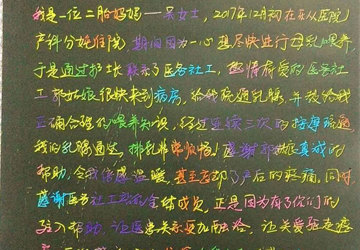 我是一位二胎妈妈——吴女士，2017年12月初在
产科分娩住院，期间因为一心想尽快进行母乳喂养
于是通过护士长联系了医务社工，热情有爱的医务社
工郭姑娘很快来到病房，给我疏通乳腺，并教给我
正确合理的喂养知识，经过连续三次的按摩疏通
我的乳腺通畅，排乳非常顺畅！感谢郭姑娘真诚的
帮助，令我倍感温暖，甚至忘却了产后的疼痛，同时
感谢医务社工部的全体成员，正是因为有了你们的
驻入帮助，让医患关系更加和谐，让关爱